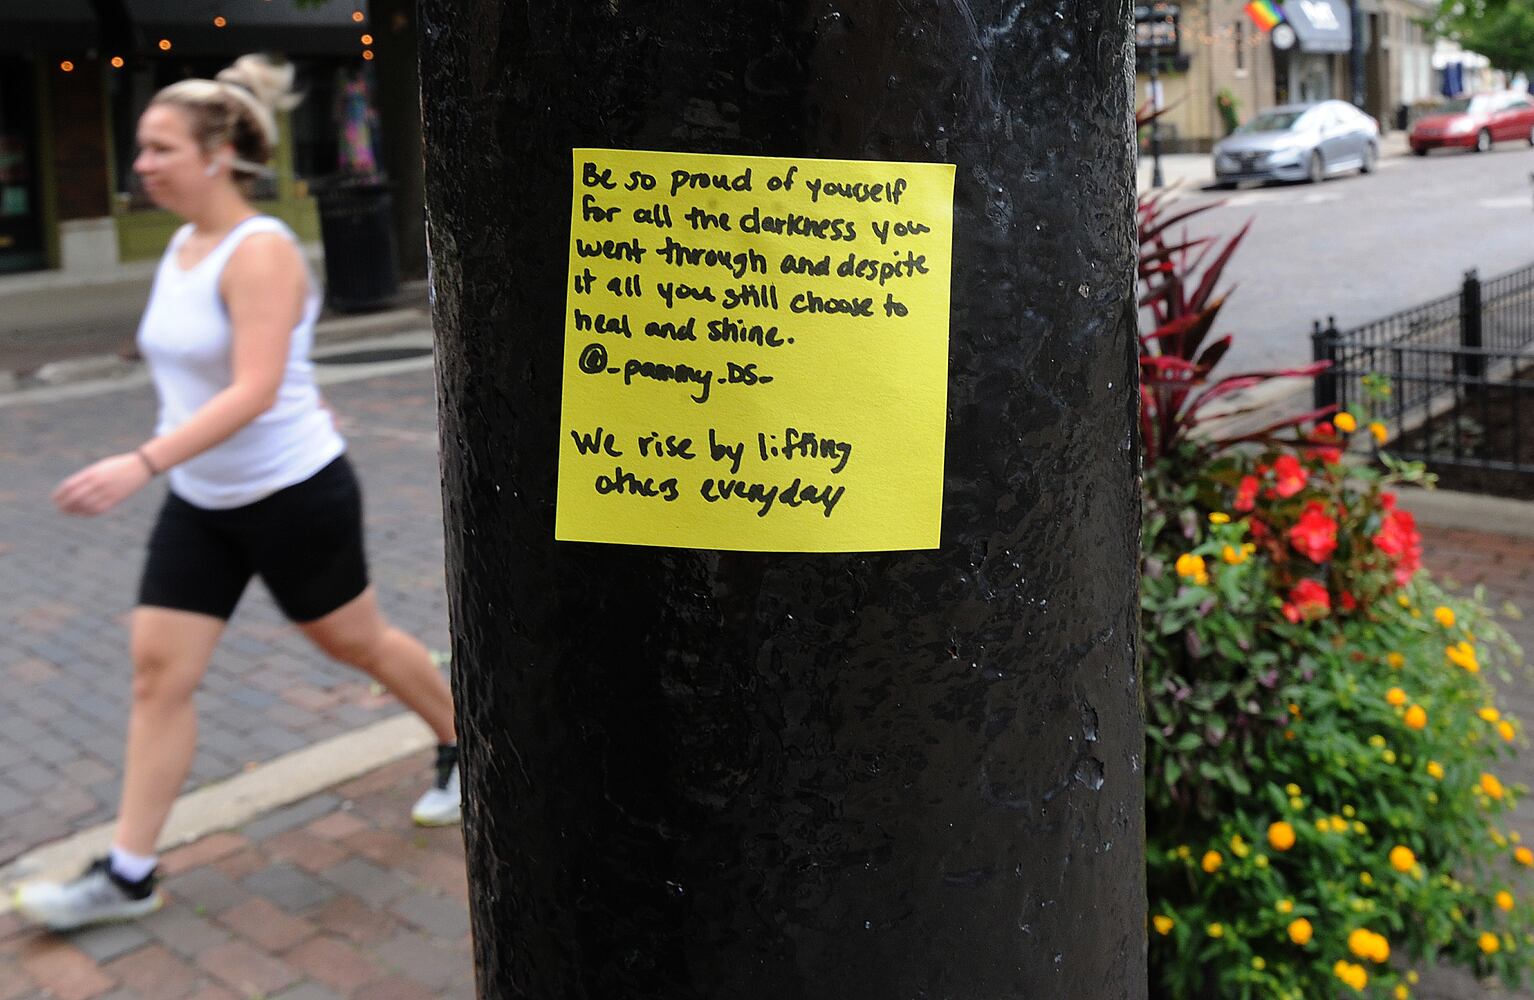 Be so proud of yourself
for all the darkness you
went through and despite
it all you still choose to
heal and shine.
@_pammy.DS_
We rise by lifting
others everyday